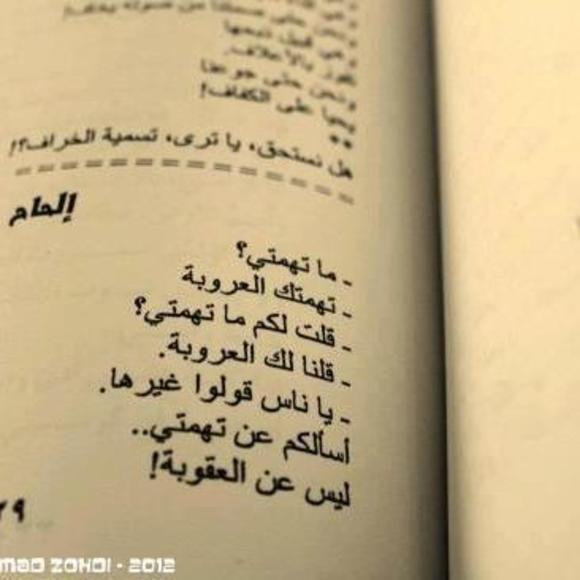 وهي قبيل ذبحها
تفوز بالأعلاف.
ونحن حتى جوعنا
يحيا على الكفاف!
**
هل نستحق، يا ترى، تسمية الخراف؟!
إلحاح
- ما تهمتي؟
- تهمتك العروبة
- قلت لكم ما تهمتي؟
- قلنا لك العروبة.
- يا ناس قولوا غيرها.
أسألكم عن تهمتي..
ليس عن العقوبة!
٢٩
MAD ZOHDI - 2012